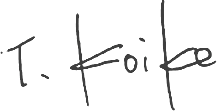 T. Koike